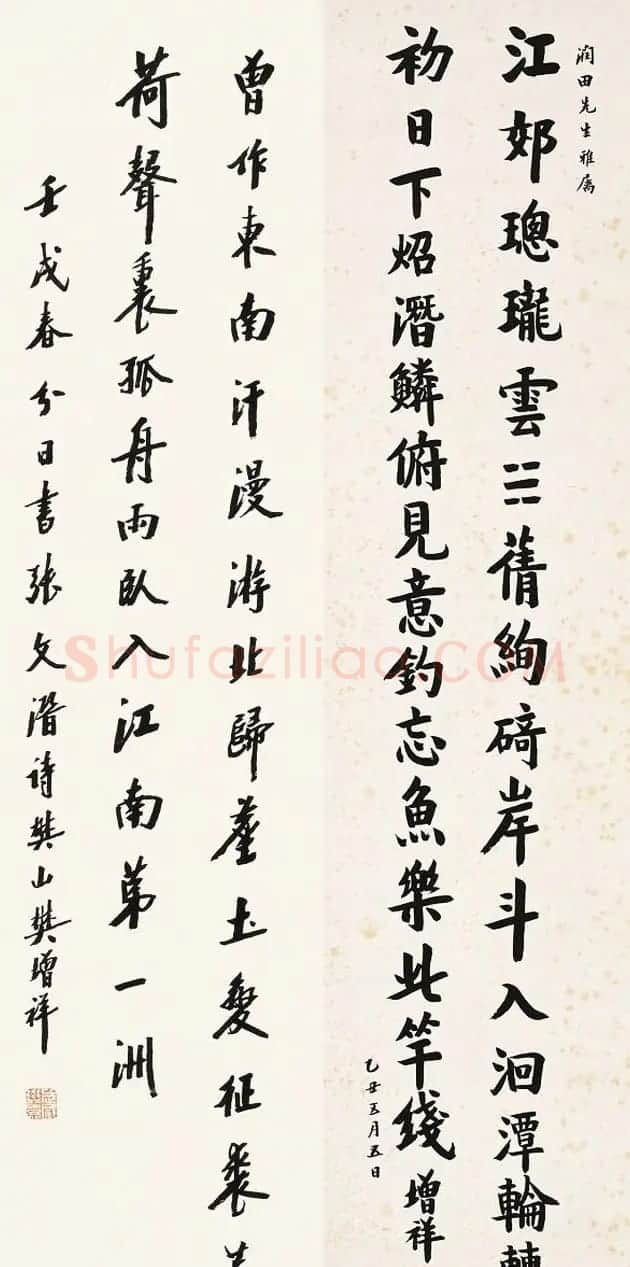 潤田先生雅屬
江郊璁瓏雲☵蒨絢碕岸斗入洄潭輪轉
初日下炤潛鱗俯見意釣忘魚樂此竿綫增祥
乙丑五月五日
曾作東南汗漫游北歸塵土變征裘
荷聲裏孤舟雨臥入江南第一洲
壬戌春分日書張文潛詩樊山樊增祥
Shufaziliao.COM